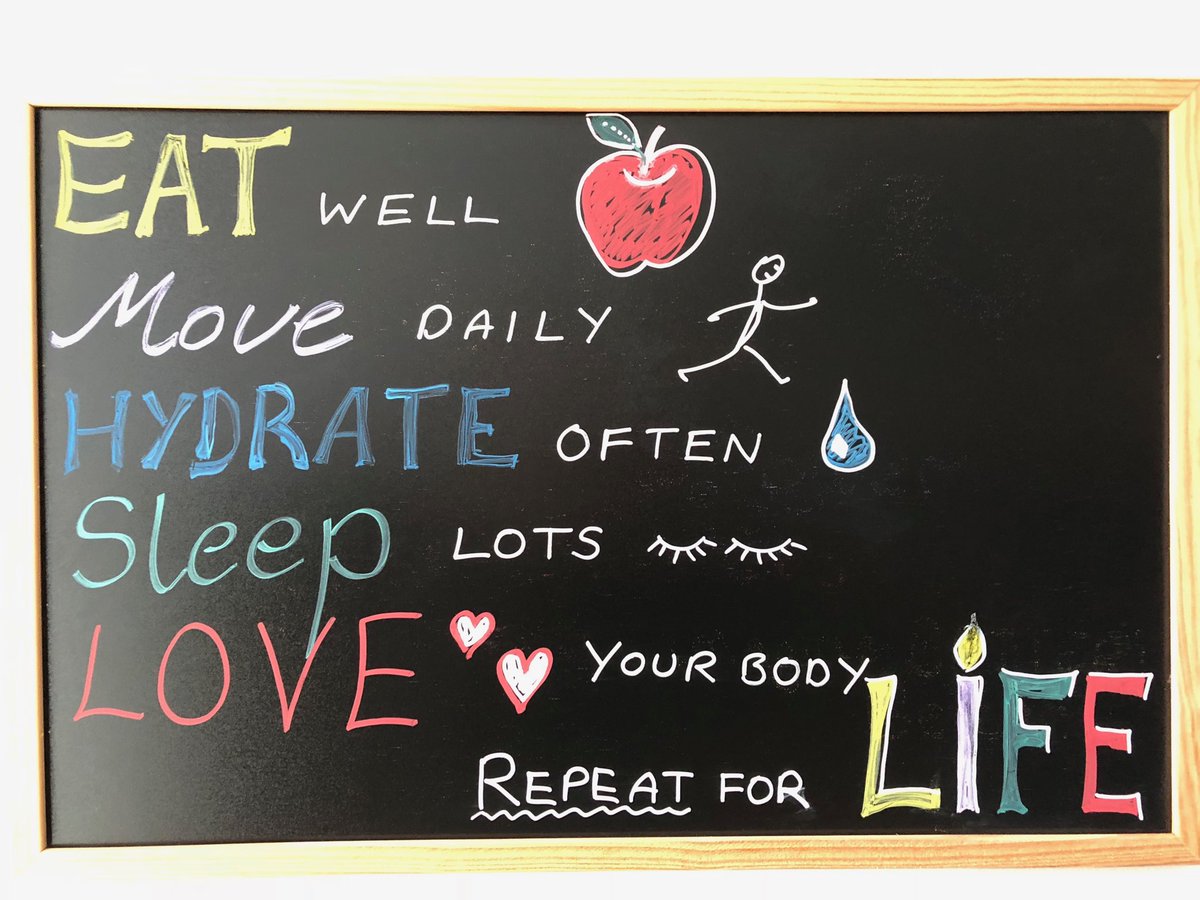 EAT WELL
Move DAILY
HYDRATE OFTEN
Sleep LOTS
LOVE YOUR BODY
REPEAT FOR LiFE